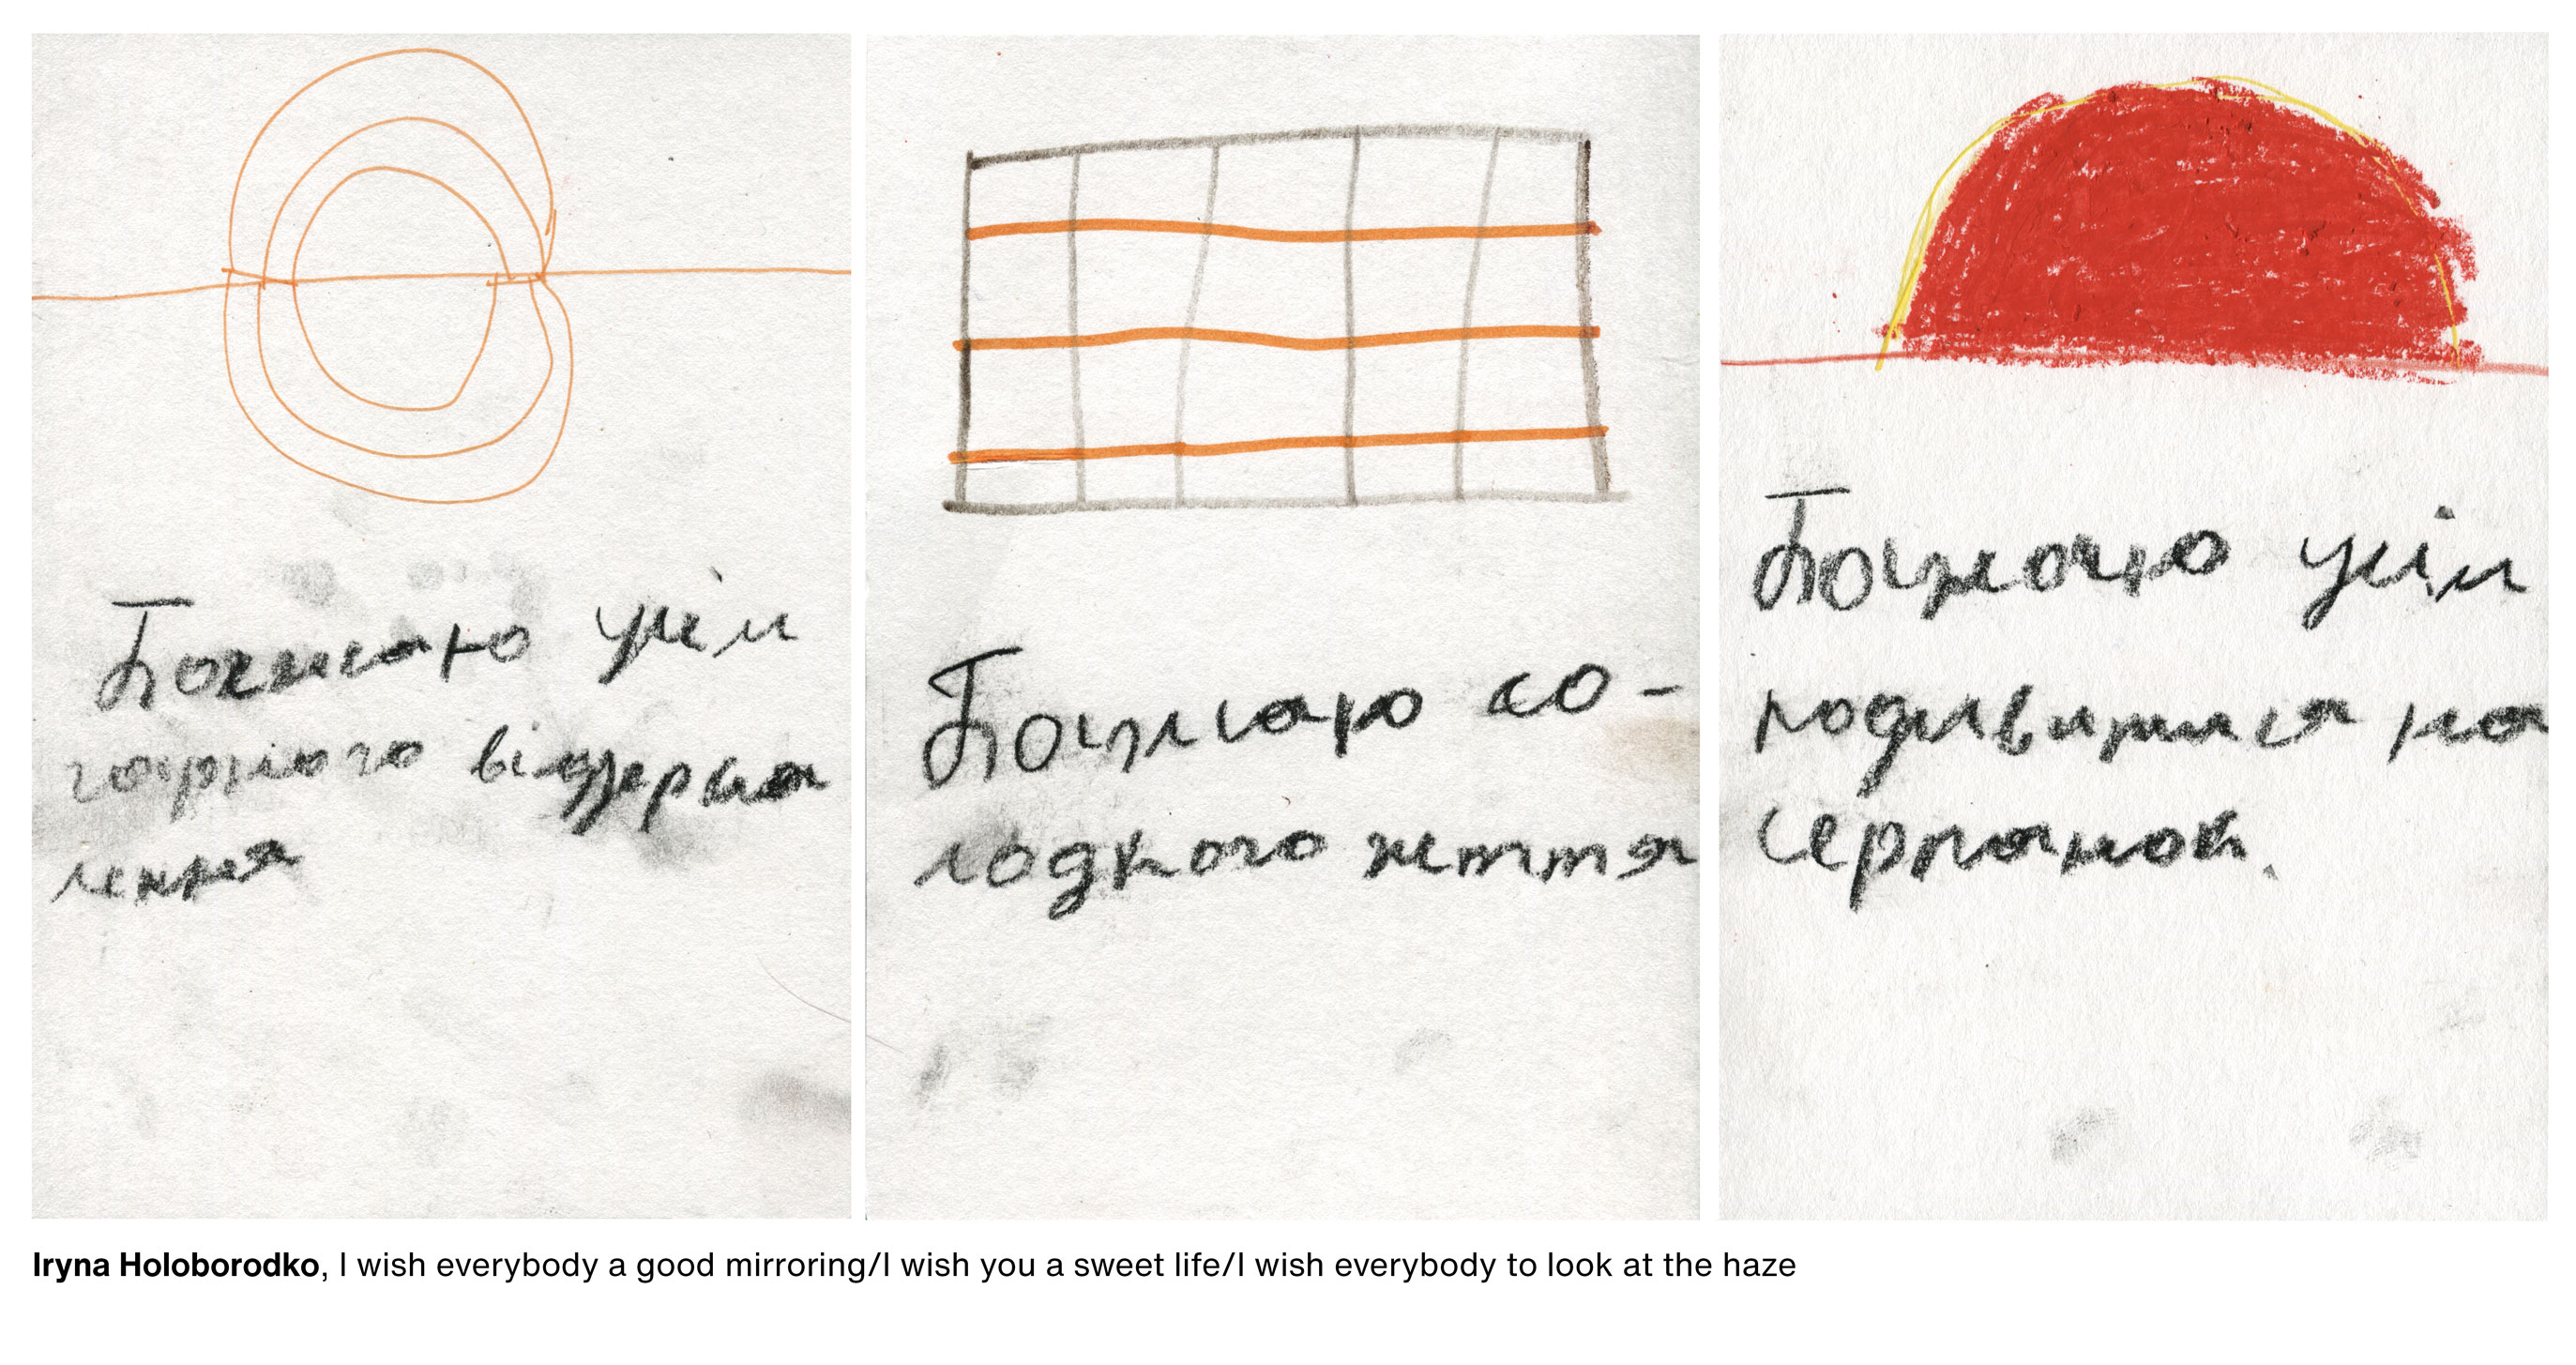 Бажаю усім
гарного віддзерка
лення
Бажаю со-
лодкого життя
Бажаю усім
подивитися на
серпанок.
Iryna Holoborodko, I wish everybody a good mirroring/I wish you a sweet life/I wish everybody to look at the haze